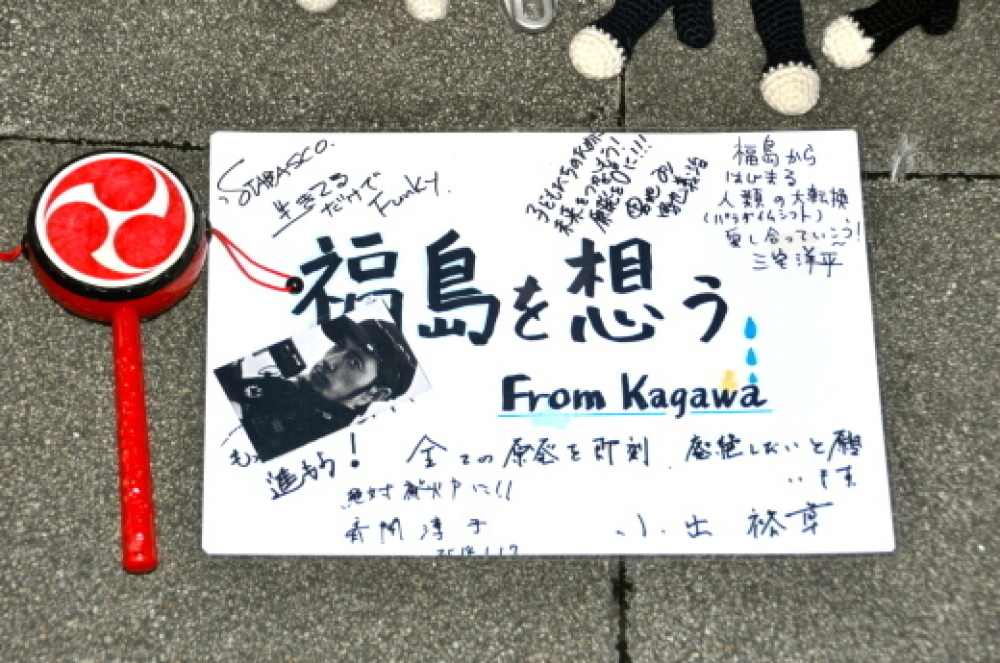 STABASCO.
生きてる
だけで
Funky.
子どもたちの
未来をつなごう!
原発を0に!!!
菊地
福島から
はじまる
人類の大転換
(パラダイムシフト)
愛し合っていこう!
三宅洋平
福島を想う
From Kagawa
進もう!
全ての原発を即刻 廃絶したいと願
います
絶対 廃炉に!!
斉間淳子
小出裕章